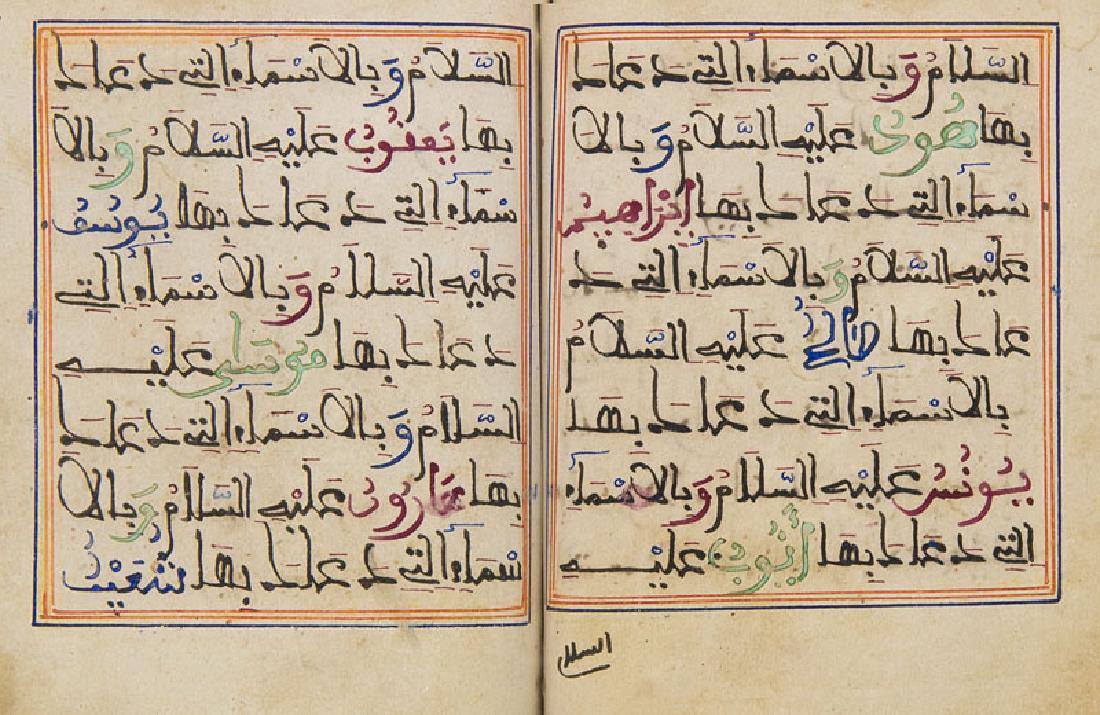 السَّلَامُ وَبِالَاسْمَاءِ التِي دَعَاكَ
بِهَا هُودٌ عَلَيْهِ السَّلَامُ وَبِالَا
سْمَاءِ التِي دَعَاكَ بِهَا إِبْرَاهِيمُ
عَلَيْهِ السَّلَامُ وَبِالَاسْمَاءِ التِي دَ
عَاكَ بِهَا صَالِحٌ عَلَيْهِ السَّلَامُ
بِالَاسْمَاءِ التِي دَعَاكَ بِهَا
يُونُسُ عَلَيْهِ السَّلَامُ وَبِالَاسْمَاءِ
التِي دَعَاكَ بِهَا أَيُّوبُ عَلَيْهِ
السلام
السَّلَامُ وَبِالَاسْمَاءِ التِي دَعَاكَ
بِهَا يَعْقُوبُ عَلَيْهِ السَّلَامُ وَبِالَا
سْمَاءِ التِي دَعَاكَ بِهَا يُوسُفُ
عَلَيْهِ السَّلَامُ وَبِالَاسْمَاءِ التِي
دَعَاكَ بِهَا مُوسَى عَلَيْهِ
السَّلَامُ وَبِالَاسْمَاءِ التِي دَعَاكَ
بِهَا هَارُونُ عَلَيْهِ السَّلَامُ وَبِالَا
سْمَاءِ التِي دَعَاكَ بِهَا شُعَيْبٌ